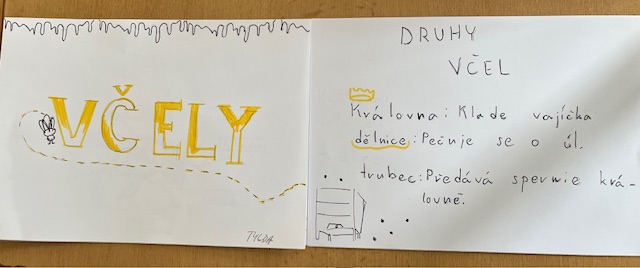 VČELY
TYLDA
DRUHY
VČEL
Královna: Klade vajíčka
dělnice: Pečuje se o úl.
trubec: Předává spermie krá-
lovně.